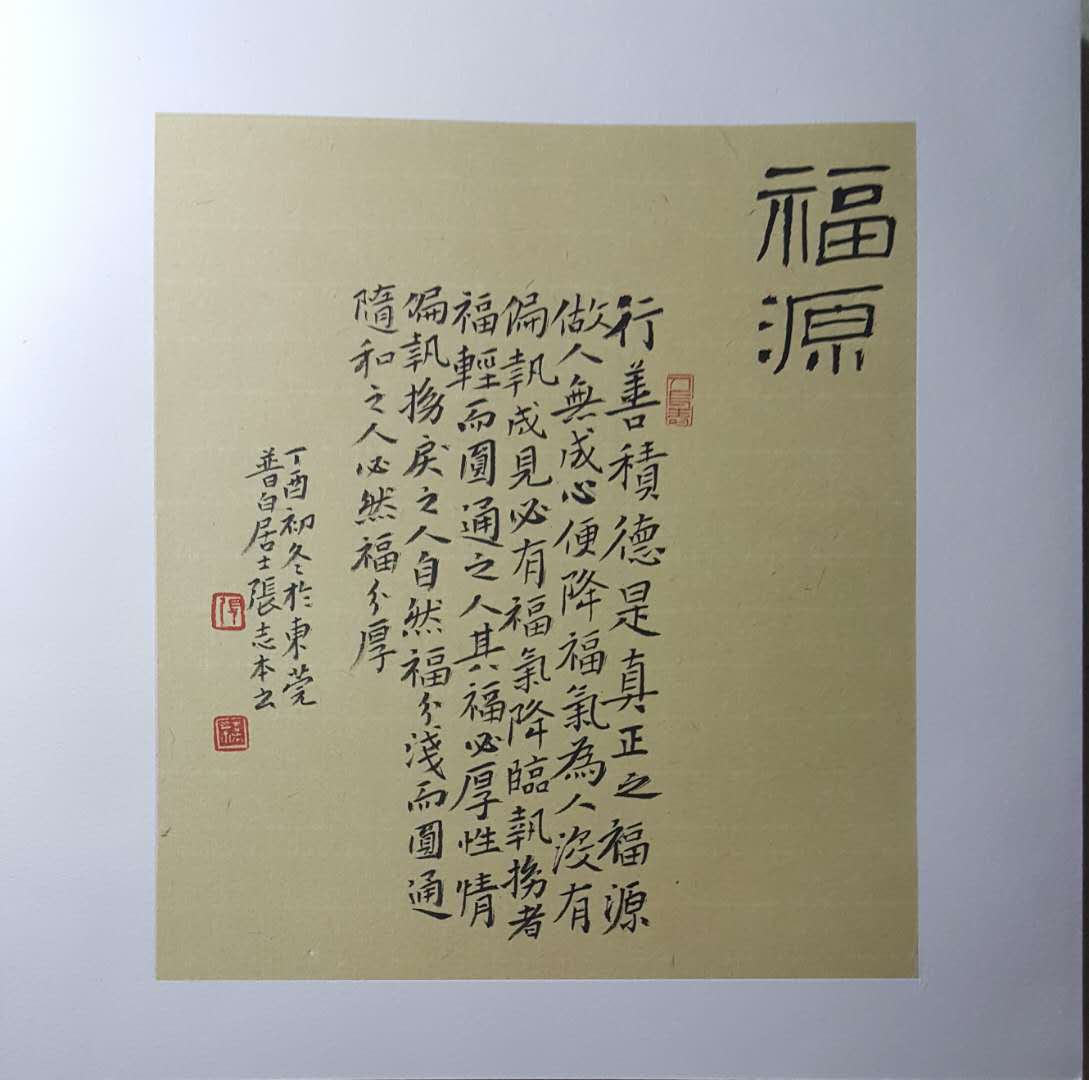 福源
行善積德是真正之福源
做人無成心便降福氣為人没有
偏執成見必有福氣降臨執拗者
福輕而圓通之人其福必厚性情
偏執拗戾之人自然福分淺而圓通
隨和之人必然福分厚
丁酉初冬於東莞
普白居士張志本书